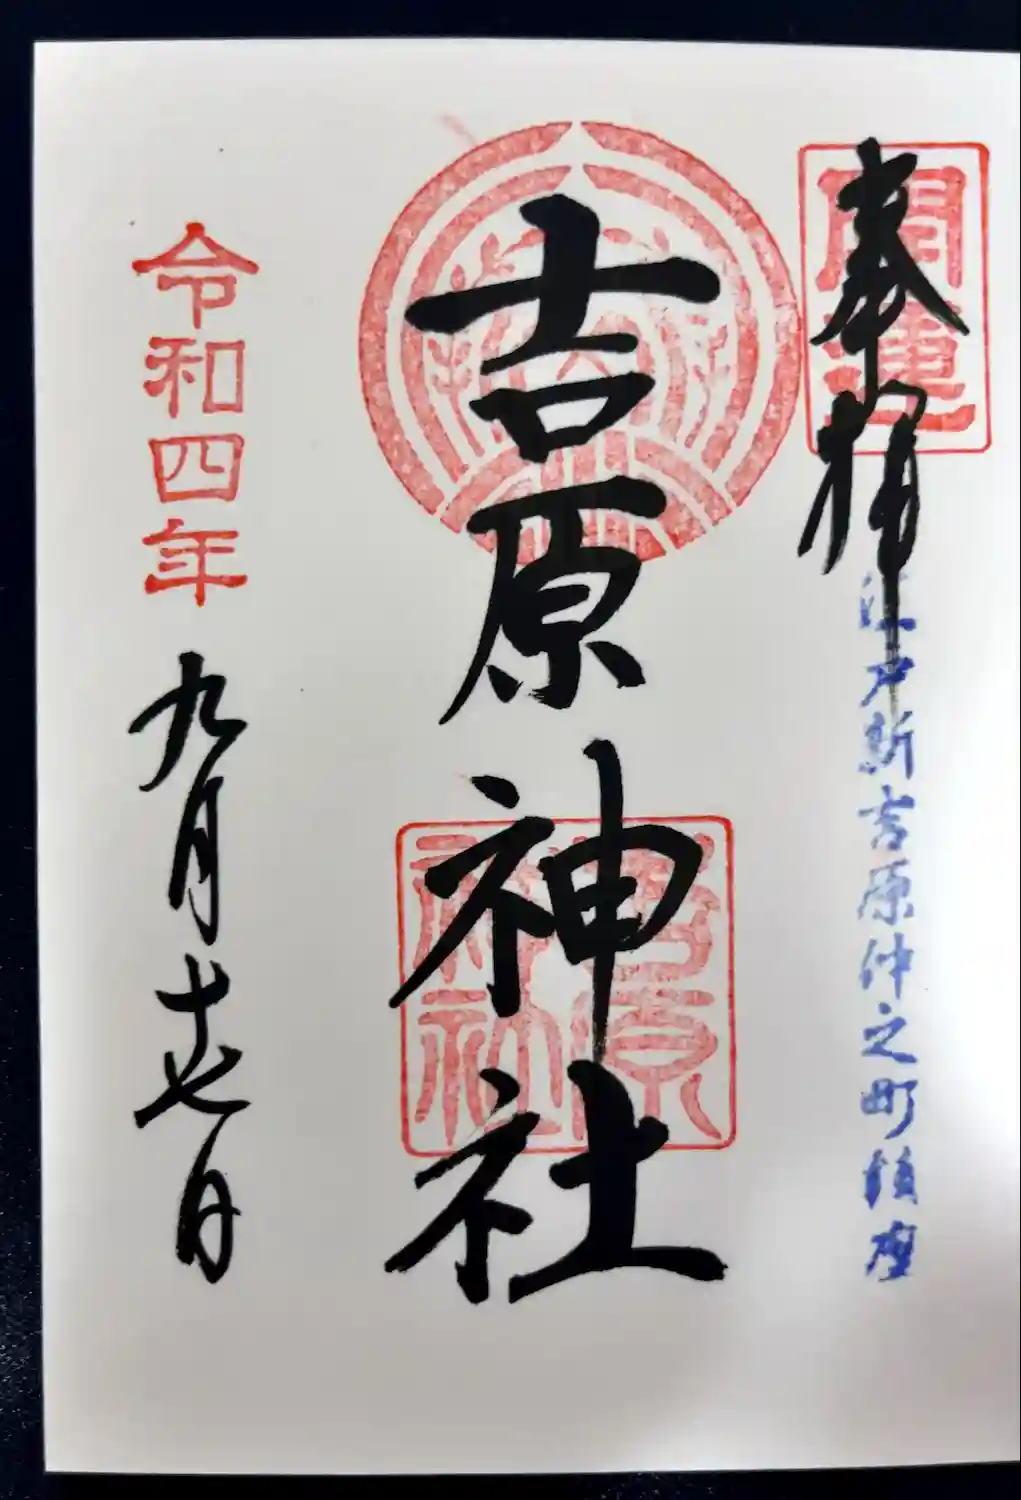 奉拝
開運
江戸新吉原仲之町鎮座
吉原神社
吉原神社
令和四年九月十七日